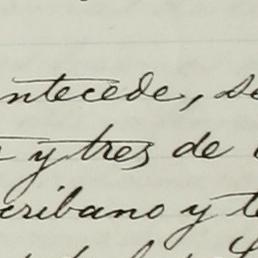 ntecede, se
y tres de
cribano y te